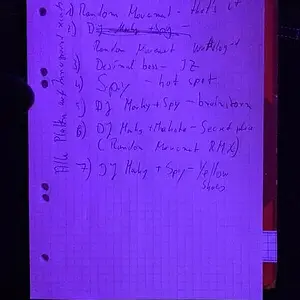 1) Random Movement - that's it
2) DJ Marky + Spy -
Random Movement
3) Decimal bass - JZ
4) Spy - hot spot
5) DJ Marky + Spy - brainstorm
6) DJ Marky + - Second
(Random Movement RMX)
7) DJ Marky + Spy - Yellow
Shoes
Alle Platten auf